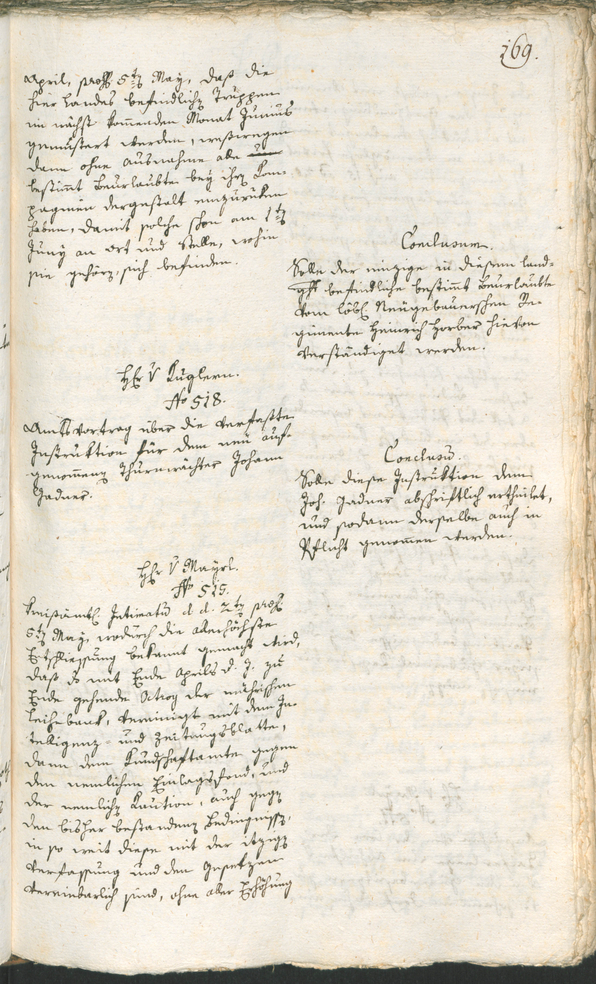 169.
April, prs. 5ten May, daß die
hier Landes befindliche Truppen
im nächst kommenden Monat Junius
gemustert werden, weßwegen
dann ohne Ausnahme alle
bestimt Beurlaubte bey ihren Com-
pagnien dergestalt einzurüken
haben, damit solche schon am 1ten
Juny an Ort und Stelle, wohin
sie gehören, sich befinden.
Conclusum.
Solle der einzige in diesem Land-
befindliche bestimt Beurlaubte
vom löbl. Neugebauerschen Re-
gimente Heinrich Horber hievon
verständiget werden.
Hr. v Kuglern.
No 518.
Amtsvortrag über die verfaßte
Instruktion für dem neu auf-
genommenen Thurnwächter Johann
Jadner.
Conclusum.
Solle diese Instruktion dem
Joh. Jadner abschriftlich ertheilet,
und sodann derselbe auch in
Pflicht genommen werden.
Hr. v Mayrl.
No 515.
Kreisämtl. Intimatum d. d. 2ten prs.
5ten May, wodurch die allerhöchste
Entschliessung bekannt gemacht wird,
daß die mit Ende Aprils d. J. zu
Ende gehende Octroy der mährischen
Leihebank, vereinigt mit dem In-
telligenz- und Zeitungsblatte,
dann dem Kundschaftamte gegen
den nemlichen Einlagsfond, und
der nemlichen Kaution, auch gegen
den bisher bestandenen Bedingnissen,
in so weit diese mit der itzigen
Verfassung und den Gesetzen
vereinbarlich sind, ohne aller Erhöhung